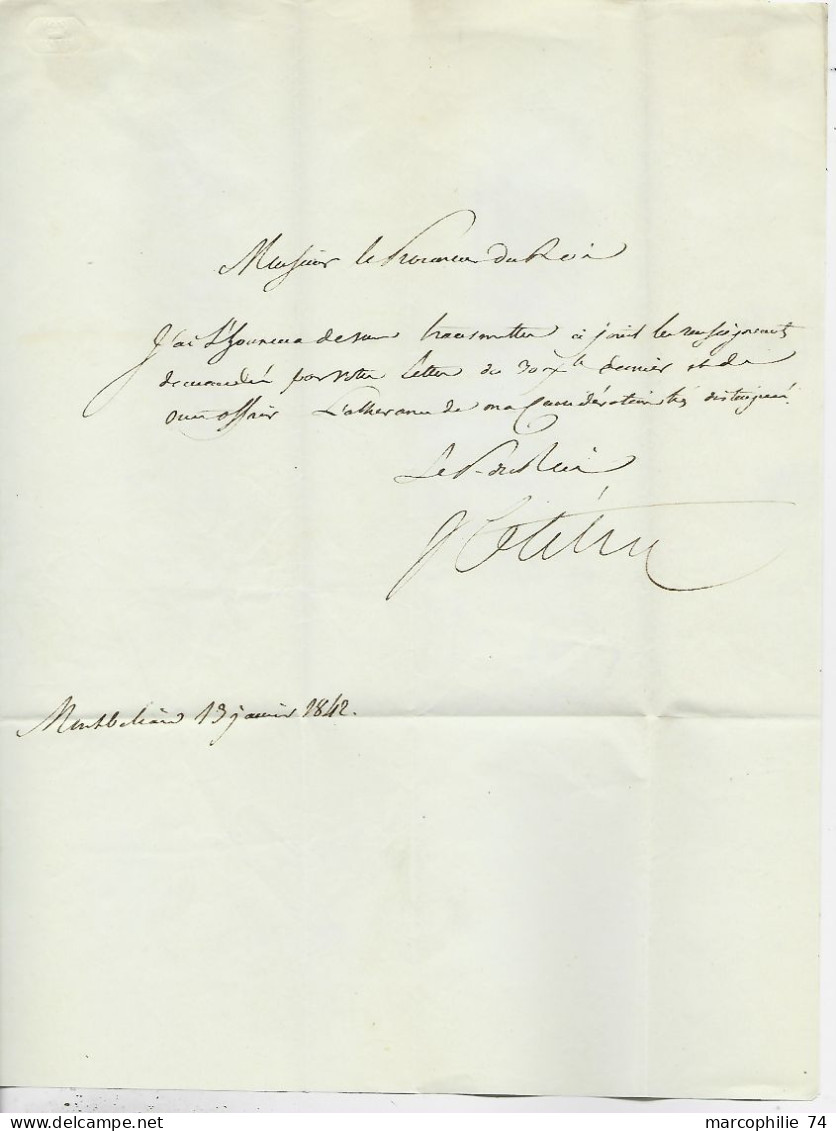 Monsieur le Procureur du Roi
J'ai l'honneur de vous transmettre ci joint les renseignements
demandés par votre lettre du 30 Xbre dernier et de
vous offrir l'assurance de ma considération très distinguée.
Le P. du Roi
Montbeliard 13 janvier 1842.
marcophilie 74